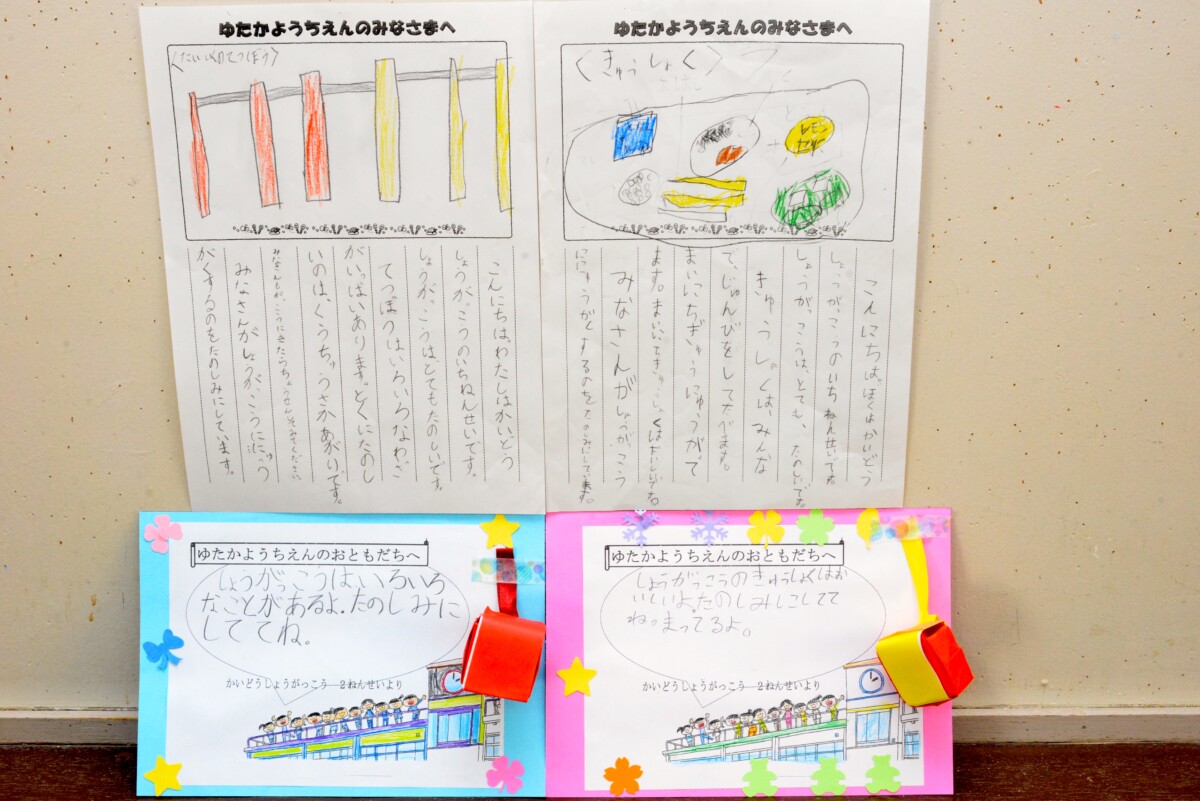 ゆたかようちえんのみなさまへ
こんにちは。わたしはかいどう
しょうがっこうのいちねんせいです。
しょうがっこうはとてもたのしいです。
てつぼうはいろいろなわざ
がいっぱいあります。とくにたのし
いのは、くうちゅうさかあがりです。
みなさんがしょうがっこうににゅう
がくするのをたのしみにしています。
ゆたかようちえんのみなさまへ
〈きゅうしょく〉
こんにちは。ぼくはかいどう
しょうがっこうのいちねんせいです。
しょうがっこうは、とても、たのしいです。
きゅうしょくは、みんな
で、じゅんびをしてたべます。
まいにちぎゅうにゅうがでて
ます。
みなさんがしょうがっこう
ににゅうがくするのをたのしみにしています。
ゆたかようちえんのおともだちへ
しょうがっこうは、いろいろ
なことがあるよ。たのしみに
しててね。
かいどうしょうがっこう 2ねんせいより
ゆたかようちえんのおともだちへ
しょうがっこうのきゅうしょくはお
いしいよ。たのしみにしてて
ね。まってるよ。
かいどうしょうがっこう 2ねんせいより